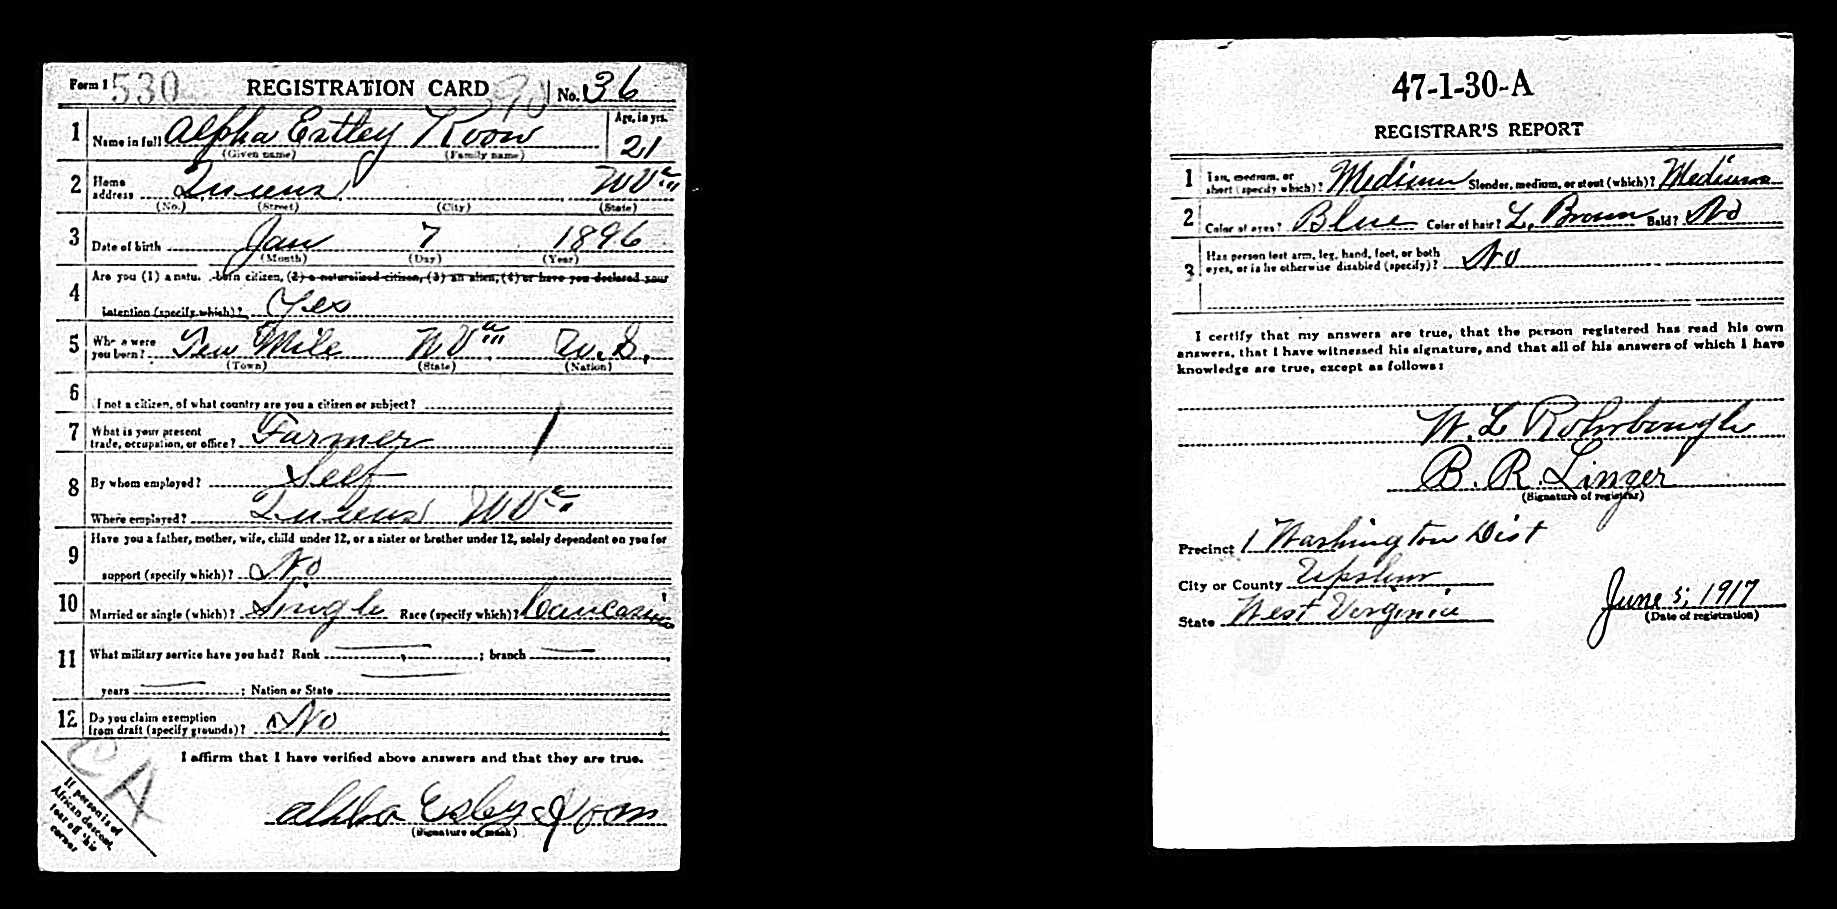 Form 1 530 REGISTRATION CARD No. 36
1 Name in full Alpha Estley Koon Age, in yrs. 21
(Given name) (Family name)
2 Home address Queens W Va
(No.) (Street) (City) (State)
3 Date of birth Jan 7 1896
(Month) (Day) (Year)
4 Are you (1) a natu born citizen, (2) a naturalized citizen, (3) an alien, (4) or have you declared your
intention (specify which)? Yes
5 Whe e were you born? Ten Mile W Va U.S.
(Town) (State) (Nation)
6 I not a citizen, of what country are you a citizen or subject?
7 What is your present trade, occupation, or office? Farmer
8 By whom employed? Self
Where employed? Queens W Va
9 Have you a father, mother, wife, child under 12, or a sister or brother under 12, solely dependent on you for
support (specify which)? No
10 Married or single (which)? Single Race (specify which)? Caucasian
11 What military service have you had? Rank ; branch
years ; Nation or State
12 Do you claim exemption from draft (specify grounds)? No
I affirm that I have verified above answers and that they are true.
Alpha Esley Koon
(Signature or mark)
If person is of
African descent,
tear off this
corner
47-1-30-A
REGISTRAR'S REPORT
1 Tall, medium, or short (specify which)? Medium Slender, medium, or stout (which)? Medium
2 Color of eyes? Blue Color of hair? L. Brown Bald? No
3 Has person lost arm, leg, hand, foot, or both eyes, or is he otherwise disabled (specify)? No
I certify that my answers are true, that the person registered has read his own
answers, that I have witnessed his signature, and that all of his answers of which I have
knowledge are true, except as follows:
W. L Rohrbough
B. R. Linger
(Signature of registrar)
Precinct 1 Washington Dist
City or County Upshur
State West Virginia June 5, 1917
(Date of registration)